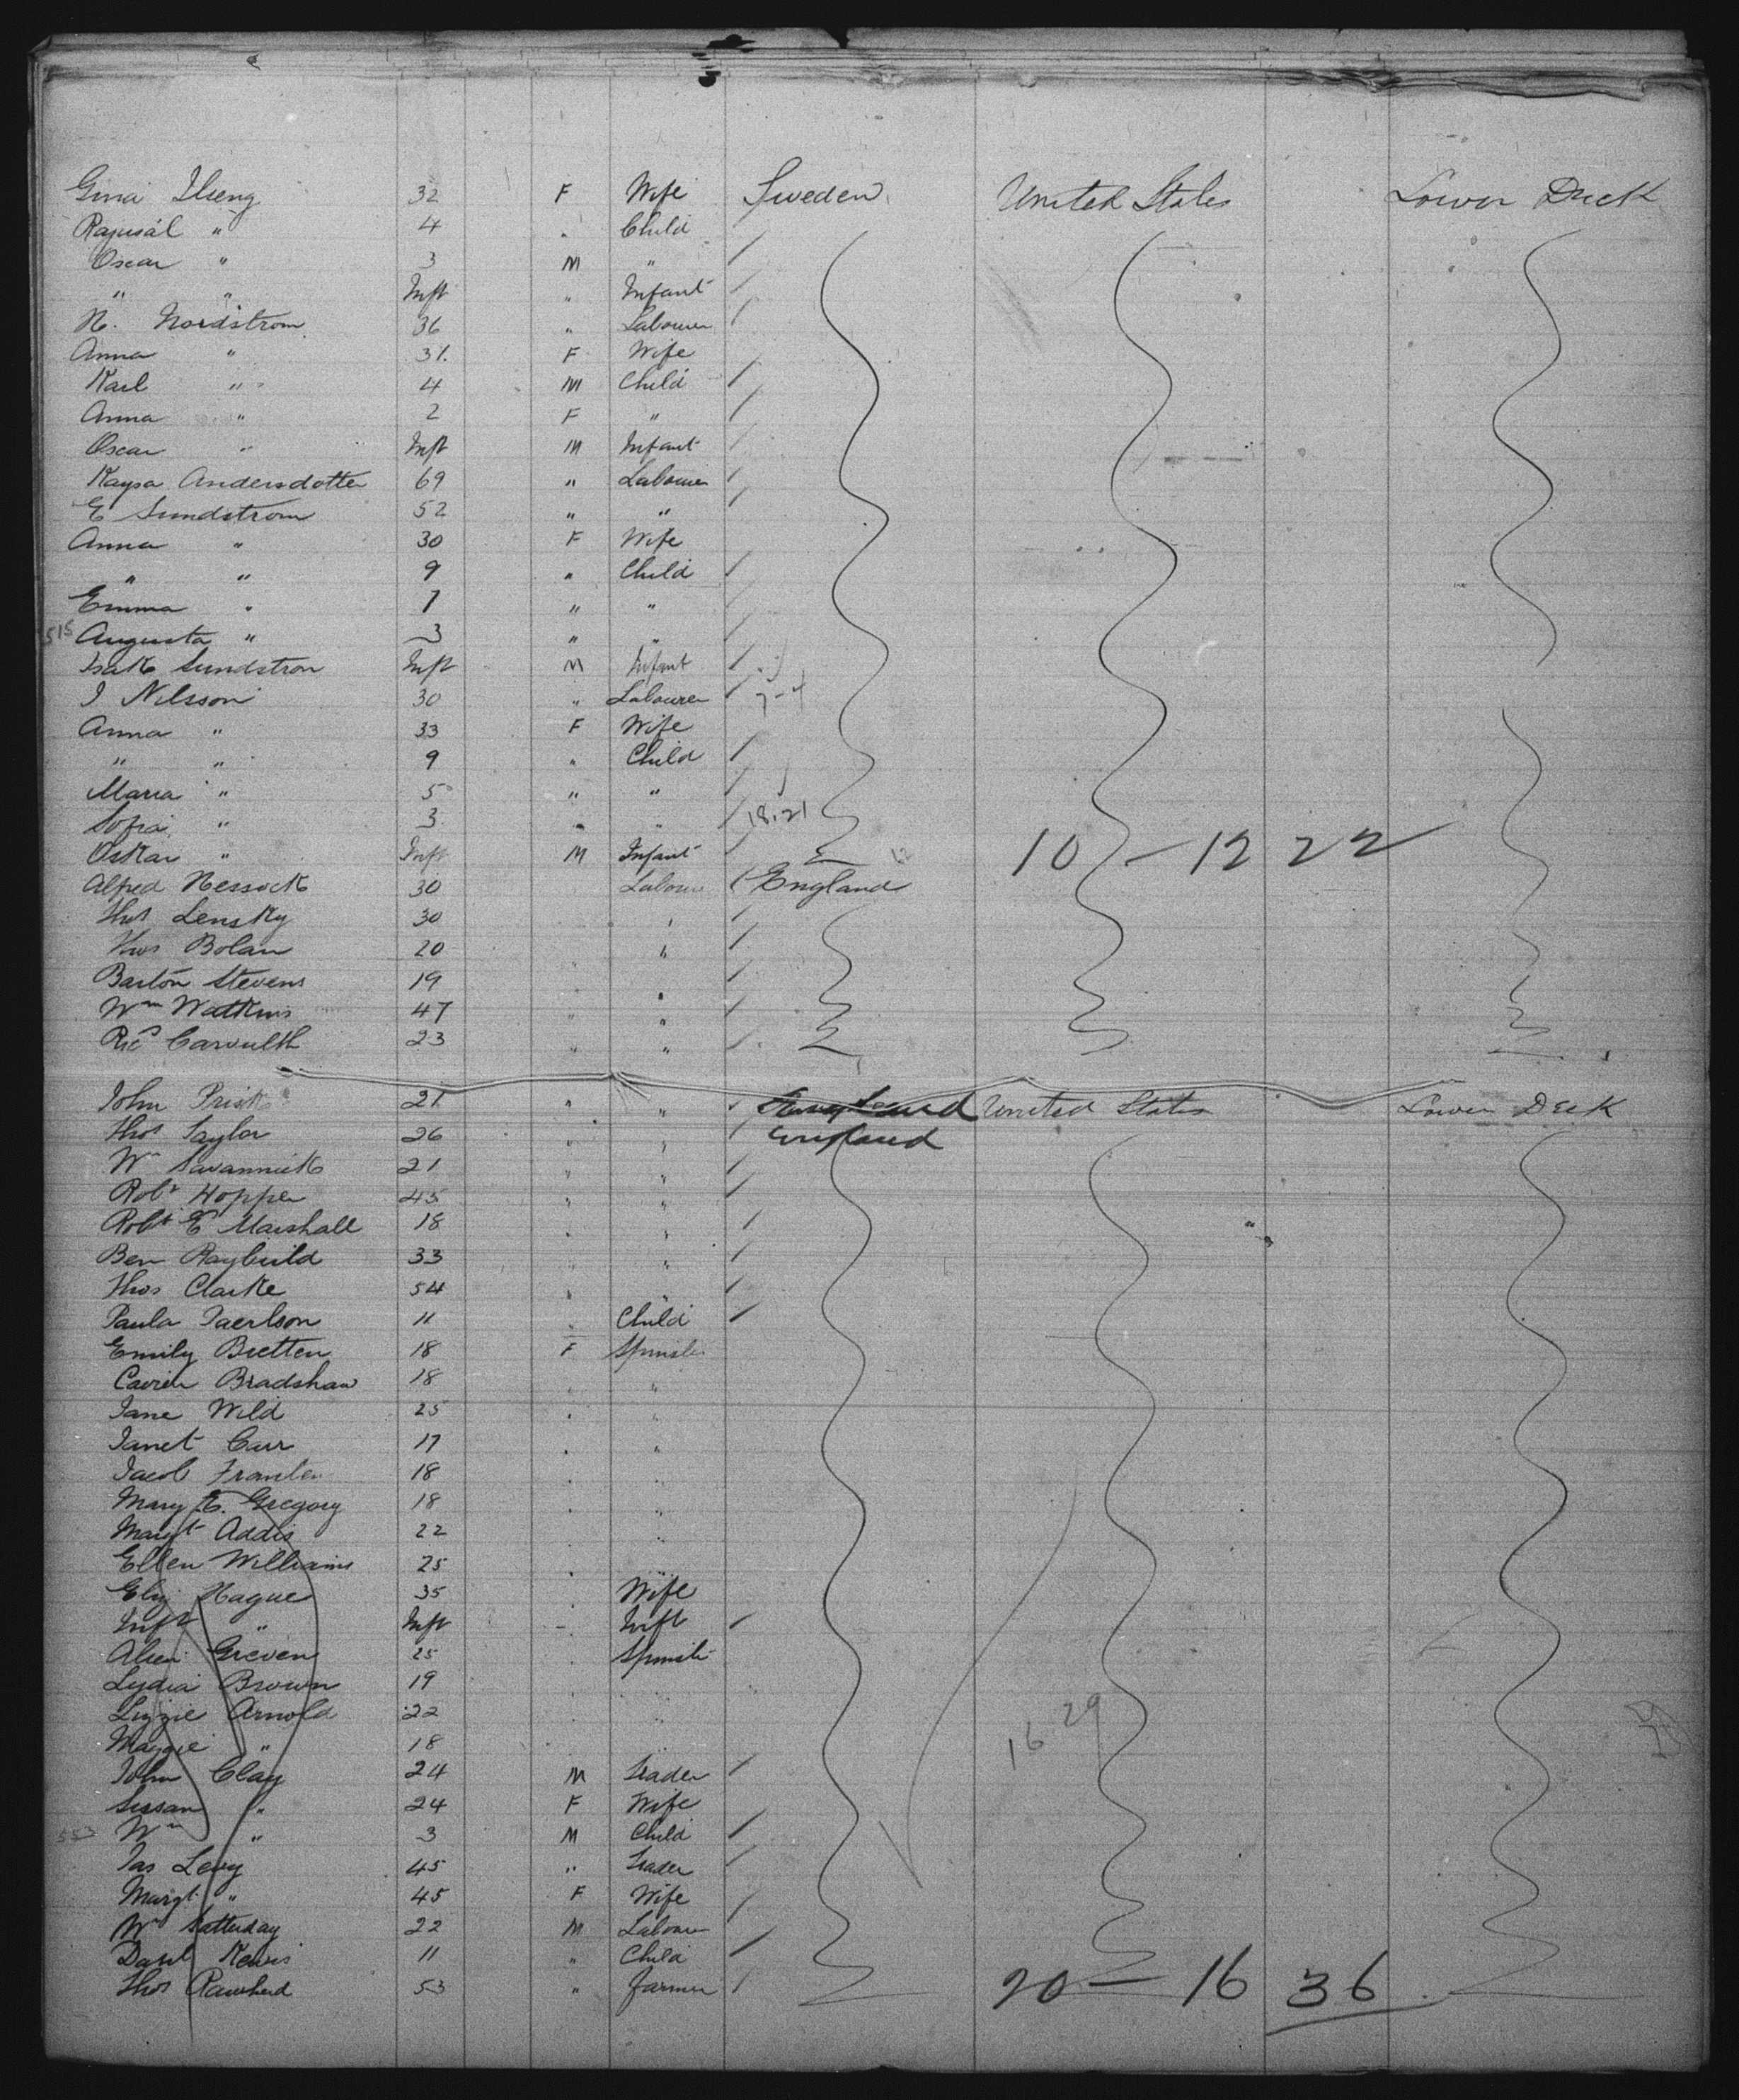 Gina Ilseng 32 F Wife Sweden United States Lower Deck
" 4 " Child
Oscar " 3 M "
" " Inft " Infant
N. Nordstrom 36 " Labourer
Anna " 31 F Wife
Karl " 4 M Child
Anna " 2 F "
Oscar " Inft M Infant
Kaysa Andersdotter 69 " Labourer
E Sundstrom 52 " "
Anna " 30 F Wife
" " 9 " Child
Emma " 7 " "
515 Augusta " 3 " "
Isak Sundstrom Inft M Infant
J Nilsson 30 " Labourer 7-4
Anna " 33 F Wife
" " 9 " Child
Maria " 5 " "
Sofia " 3 " " 18.21
Oskar " Inft M Infant 10 - 12 22
Alfred Hessock 30 Labour England
Thos Lensky 30 "
Thos Bolan 20 "
Barton Stevens 19 "
Wm Watkins 47 " "
Ric Carvulth 23 " "
John Prisk 21 " " England United States Lower Deck
Thos Taylor 26 " " England
Wm Savannick 21 " "
Robt Hopper 45 " "
Robt E Marshall 18 " "
Ben Raybuild 33 " "
Thos Clarke 54 " "
Paula 11 " Child
Emily Bretten 18 F Spinster
Bradshaw 18 " "
Jane Wild 25 " "
Janet Carr 17 " "
Jacob 18 " "
Mary E. Gregory 18 " "
Margt Addis 22 " "
Ellen Williams 25 " "
Eliz Hague 35 " Wife
Inft " Inft " Inft
Greven 25 " Spinster
Lydia Brown 19 " "
Lizzie Arnold 22 " " 16 29
Maggie " 18 " "
John Clay 24 M Trader
Susan " 24 F Wife
553 Wm " 3 M Child
Jas Levy 45 " Trader
Margt " 45 F Wife
Wm Satterday 22 M Labour
11 " Child
Thos Rawherd 53 " Farmer 20 - 16 36